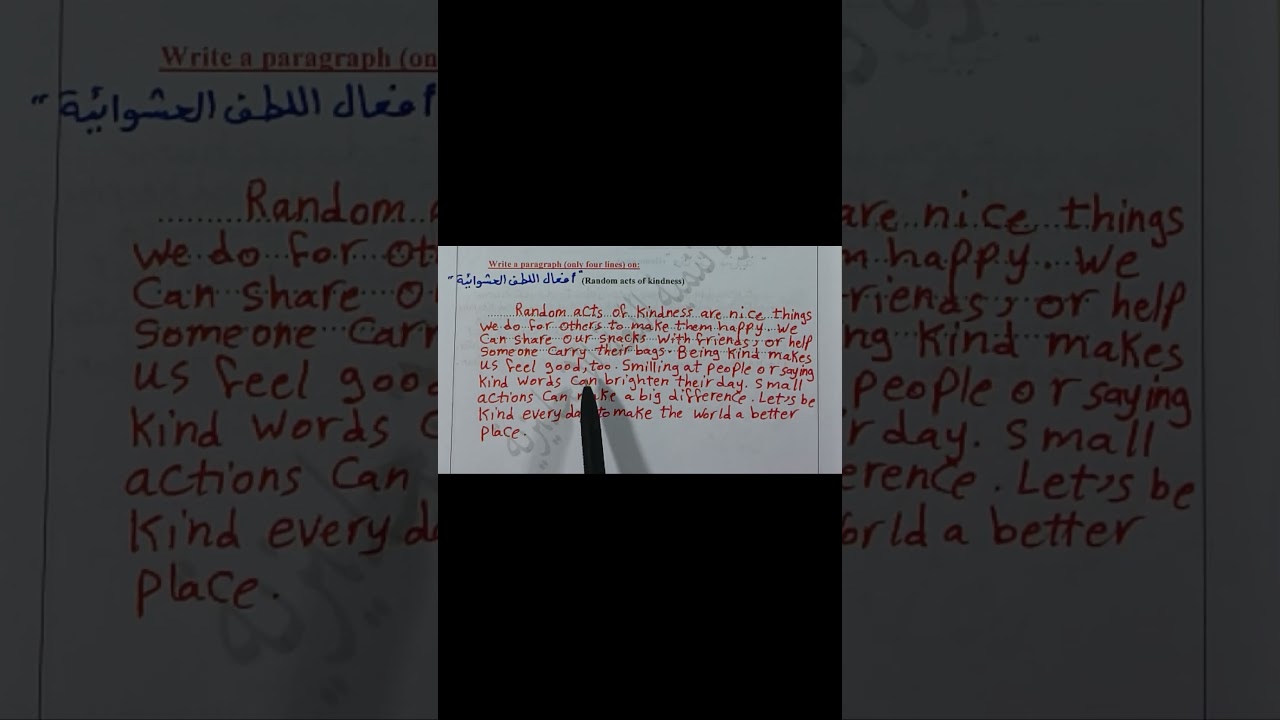 Write a paragraph (only four lines) on:
"أفعال اللطف العشوائية" (Random acts of kindness)
Random acts of kindness are nice things
we do for others to make them happy. We
Can share our snacks with friends, or help
Someone carry their bags. Being kind makes
us feel good, too. Smilling at people or saying
kind words can brighten their day. Small
actions can make a big difference. Let's be
kind every day to make the world a better
place.